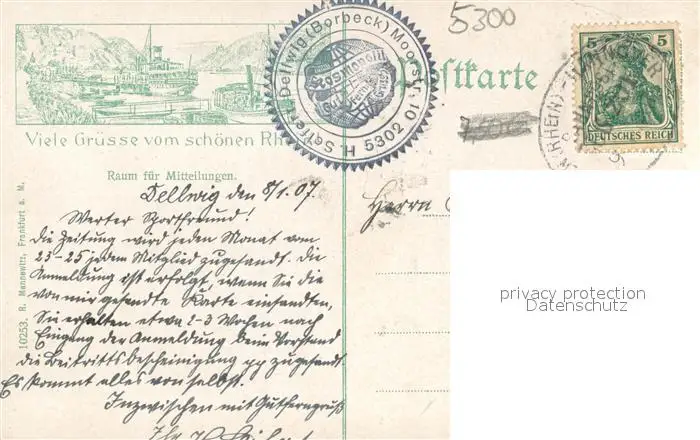 5300
H. Seifer, Dellwig (Borbeck) Moorstr. 10
5302
Postkarte
5
5
DEUTSCHES REICH
(RHEIN)
Viele Grüsse vom schönen Rh
Raum für Mitteilungen.
Dellwig den 8/1.07.
Werter Sportfreund!
Die Zeitung wird jeden Monat vom
23-25 jedem Mitglied zugesandt. Die
Anmeldung ist erfolgt, wenn Sie die
von mir gesandte Karte einsandten,
Sie erhalten etwa 2-3 Wochen nach
Eingang der Anmeldung beim Vorstand
die Beitrittsbescheinigung pp zugesandt.
Es kommt alles von selbst.
Inzwischen mit Gutferngruß
Ihr H.
Herrn
privacy protection
Datenschutz
10253. R. Mannewitz, Frankfurt a. M.